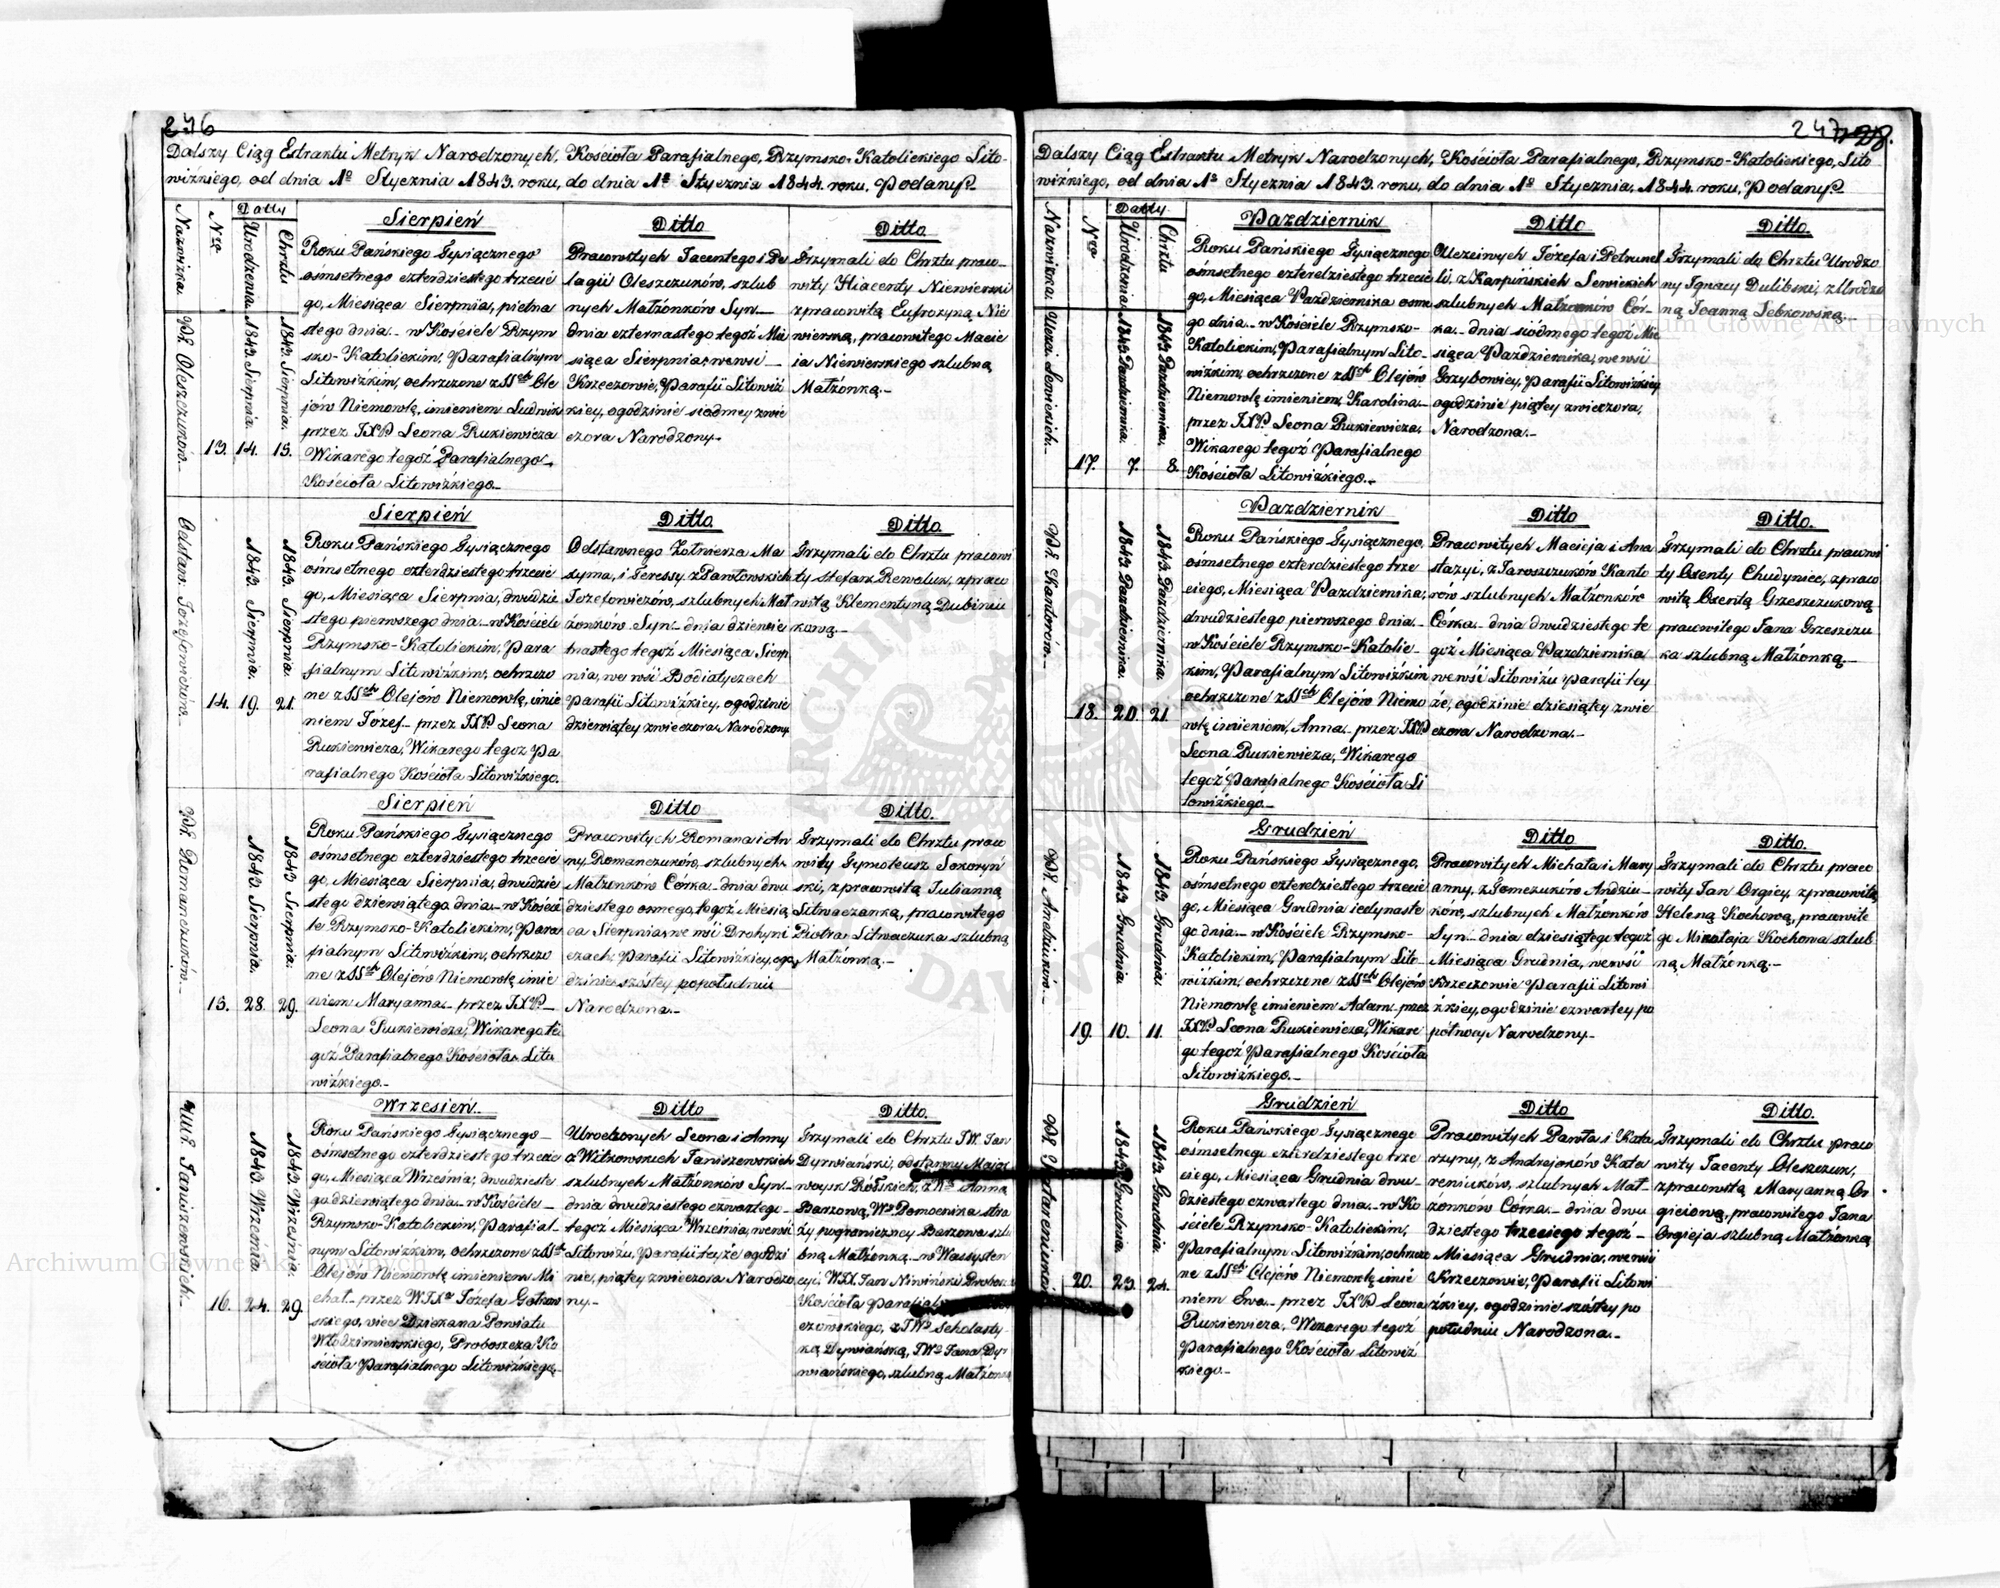 246
Dalszy Ciąg Extraktu Metryk Narodzonych, Kościoła Parafialnego, Rzymsko-Katolickiego Lito-
wizkiego, od dnia 1º Stycznia 1843. roku, do dnia 1º Stycznia 1844. roku, Podany.
Nazwiska.
Nro
Datty
Urodzenia
Chrztu
Pł. Oleszczuków.
13.
14.
15.
1843 Sierpnia.
1843 Sierpnia.
Sierpień
Roku Pańskiego Tysiącznego
ośmsetnego czterdziestego trzecie
go, Miesiąca Sierpnia, pietna
stego dnia. w Kościele Rzym
sko-Katolickim, Parafialnym
Litowizkim, ochrzczone z SSch Ole
jów Niemowlę, imieniem Ludwik
przez JXP Leona Rukiewicza
Wikarego tegoż Parafialnego
Kościoła Litowizkiego.
Ditto
Pracowitych Jacentego i Pe
lagii Oleszczuków, szlub
nych Małżonków Syn
dnia czternastego tegoż Mie
siąca Sierpnia, wewsi
Krzeczowie, Parafii Litowiz
kiey, ogodzinie siodmey zwie
czora Narodzony.
Ditto
Trzymali do Chrztu praco-
wity Hiacenty Niewierski
z pracowitą Eufrozyną Nie
wierską, pracowitego Macie
ia Niewierskiego szlubną
Małżonką.
Odstaw. Jozefowiczów.
14.
19.
21.
1843. Sierpnia.
1843. Sierpnia.
Sierpień
Roku Pańskiego Tysiącznego
ośmsetnego czterdziestego trzecie
go, Miesiąca Sierpnia, dwudzie
stego pierwszego dnia. w Kościele
Rzymsko-Katolickim, Para
fialnym Litowizkim, ochrzczo
ne z SSch Olejów Niemowlę, imie
niem Jozef przez JXP Leona
Rukiewicza, Wikarego tegoz Pa
rafialnego Kościoła Litowizkiego.
Ditto
Odstawnego Żołnierza Ma
xyma, i Teressy z Pawłowskich
Jozefowiczów, szlubnych Mał
żonków Syn dnia dziewie
tnastego tegoż Miesiąca Sierp
nia, we wsi Bodiatyczach
Parafii Litowizkiey, ogodzinie
dziewiątey zwieczora Narodzony
Ditto
Trzymali do Chrztu pracowi
ty Stefan Rewaluk, z praco
witą Klementyną Dubiniu
kową.
Pł. Romanczuków.
15.
28.
29.
1843 Sierpnia.
1843 Sierpnia.
Sierpień
Roku Pańskiego Tysiącznego
ośmsetnego czterdziestego trzecie
go, Miesiąca Sierpnia, dwudzie
stego dziewiątego dnia. w Kości
le Rzymsko-Katolickim, Para
fialnym Litowizkim, ochrzczo
ne z SSch Olejów Niemowlę imie
niem Maryanna przez JXP
Leona Rukiewicza, Wikarego te
goż Parafialnego Kościoła Lito
wizkiego.
Ditto
Pracowitych Romana i An
ny Romanczuków, szlubnych
Małżonków Corka dnia dwu
dziestego osmego, tegoż Miesią
ca Sierpnia, we wsi Drohyni
czach, Parafii Litowizkiey, ogo
dzinie szóstey popołudniu
Narodzona.
Ditto.
Trzymali do Chrztu praco
wity Tymoteusz Sokoryń
ski, z pracowitą Julianną
Litwaczanką, pracowitego
Piotra Litwaczuka szlubną
Małżonką.
Ur. Janiszewskich.
16.
24.
29.
1843. Września.
1843. Września.
Wrzesień
Roku Pańskiego Tysiącznego
ośmsetnego czterdziestego trzecie
go, Miesiąca Września, dwudzieste
go dziewiątego dnia. w Kościele
Rzymsko-Katolickim, Parafial
nym Litowizkim, ochrzczone z SSch
Olejów Niemowlę imieniem Mi
chał przez WJXa Józefa Gotkow
skiego, vice Dziekana Powiatu
Włodzimierskiego, Proboszcza Ko
ścioła Parafialnego Litowizkiego.
Ditto
Urodzonych Leona i Anny
z Witkowskich Janiszewskich
szlubnych Małżonków Syn
dnia dwudziestego czwartego
tegoż Miesiąca Września, wewsi
Litowizu, Parafii teyże ogodzi
nie, piątey zwieczora Narodzo
ny.
Ditto.
Trzymali do Chrztu JW. Jan
Dyrwiański, odstawny Major
woysk Rossskich, z Wą Anną
Barzową, Wo Pomocnika stra
ży pogranicznej Barzowa szlu
bną Małżonką. w Wassysten
cyi, WJX Jan Niwiński Probosz
Kościoła Parafial
czowskiego, z JWą Scholasty
ką Dyrwiańską, JWo Jana Dyr
wiańskiego, szlubną Małżonką
247
Dalszy Ciąg Extraktu Metryk Narodzonych, Kościoła Parafialnego, Rzymsko-Katolickiego, Lito
wizkiego, od dnia 1º Stycznia 1843. roku, do dnia 1º Stycznia, 1844. roku, Podany.
Nazwiska.
Nro
Datty
Urodzenia
Chrztu
Ucz. Lewickich.
17.
7.
8.
1843 Pazdziernika.
1843 Pazdziernika.
Pazdziernik
Roku Pańskiego Tysiącznego
ośmsetnego czterdziestego trzecie
go, Miesiąca Pazdziernika osme
go dnia. w Kościele Rzymsko-
Katolickim, Parafialnym Lito-
wizkim, ochrzczone z SSch Olejów
Niemowlę imieniem, Karolina.
przez JXP. Leona Rukiewicza,
Wikarego tegoż Parafialnego
Kościoła Litowizkiego.
Ditto
Uczciwych Józefa i Petrunel
li, z Karpińskich Lewickich
szlubnych Małżonków Cór-
ka. dnia siodmego tegoż Mie
siąca Pazdziernika, we wsi
Grzybowicy, Parafii Litowizkiey
ogodzinie piątey zwieczora,
Narodzona.
Ditto.
Trzymali do Chrztu Urodzo
ny Ignacy Dulibski, z Urodzo
ną Joanną Lebkowską.
Pł. Kantorów.
18.
20.
21.
1843 Pazdziernika.
1843. Pazdziernika.
Pazdziernik
Roku Pańskiego Tysiącznego,
ośmsetnego czterdziestego trze
ciego, Miesiąca Pazdziernika,
dwudziestego pierwszego dnia.
w Kościele Rzymsko-Katolic-
kim, Parafialnym Litowizkim
ochrzczone z SSch Olejów Niemo
wlę imieniem, Anna. przez JXP
Leona Rukiewicza, Wikarego
tegoż Parafialnego Kościoła Li
towizkiego.
Ditto
Pracowitych Macieja i Ana
stazyi, z Jaroszczuków Kanto
rów szlubnych Małżonków
Córka. dnia dwudziestego te
goż Miesiąca Pazdziernika
wewsi Litowizu Parafii tey
że, ogodzinie dziesiątey zwie
czora Narodzona.
Ditto.
Trzymali do Chrztu pracowi
ty Oxenty Chudyniec, z praco
witą Oxentą Grzeszczukową
pracowitego Jana Grzeszczu
ka szlubną Małżonką.
Pł. Andziuków.
19.
10.
11.
1843 Grudnia.
1843. Grudnia.
Grudzień
Roku Pańskiego Tysiącznego,
ośmsetnego czterdziestego trzecie
go, Miesiąca Grudnia iedynaste
go dnia. w Kościele Rzymsko-
Katolickim, Parafialnym Lito-
wizkim, ochrzczone z SSch Olejów
Niemowlę imieniem Adam przez
JXP Leona Rukiewicza, Wikare
go tegoż Parafialnego Kościoła
Litowizkiego.
Ditto
Pracowitych Michała i Mary
anny, z Tomczuków Andziu-
ków, szlubnych Małżonków
Syn. dnia dziesiątego tegoż
Miesiąca Grudnia, wewsi
Krzeczowie Parafii Litowi
zkiey, ogodzinie czwartey po
północy Narodzony.
Ditto.
Trzymali do Chrztu praco
wity Jan Orgiey, z pracowitą
Heleną Kochową, pracowite
go Mikołaja Kochowa szlub
ną Małżonką.
20.
23.
24.
1843 Grudnia.
1843. Grudnia.
Grudzień
Roku Pańskiego Tysiącznego
ośmsetnego czterdziestego trze
ciego, Miesiąca Grudnia dwu-
dziestego czwartego dnia. w Ko
ściele Rzymsko-Katolickim,
Parafialnym Litowizkim, ochrzczo
ne z SSch Olejów Niemowlę imie
niem Ewa. przez JXP Leona
Rukiewicza, Wikarego tegoż
Parafialnego Kościoła Litowiz
kiego.
Ditto
Pracowitych Pawła i Kata
rzyny, z Andrejuków Kata
reniuków, szlubnych Mał-
żonków Córka. dnia dwu
dziestego trzeciego tegoż
Miesiąca Grudnia, wewsi
Krzeczowie, Parafii Litowi
zkiey, ogodzinie szóstey po
południu Narodzona.
Ditto.
Trzymali do Chrztu praco
wity Jacenty Oleszczuk,
z pracowitą Maryanną Or
gieiową, pracowitego Jana
Orgieja szlubną Małżonką
Archiwum Główne Akt Dawnych